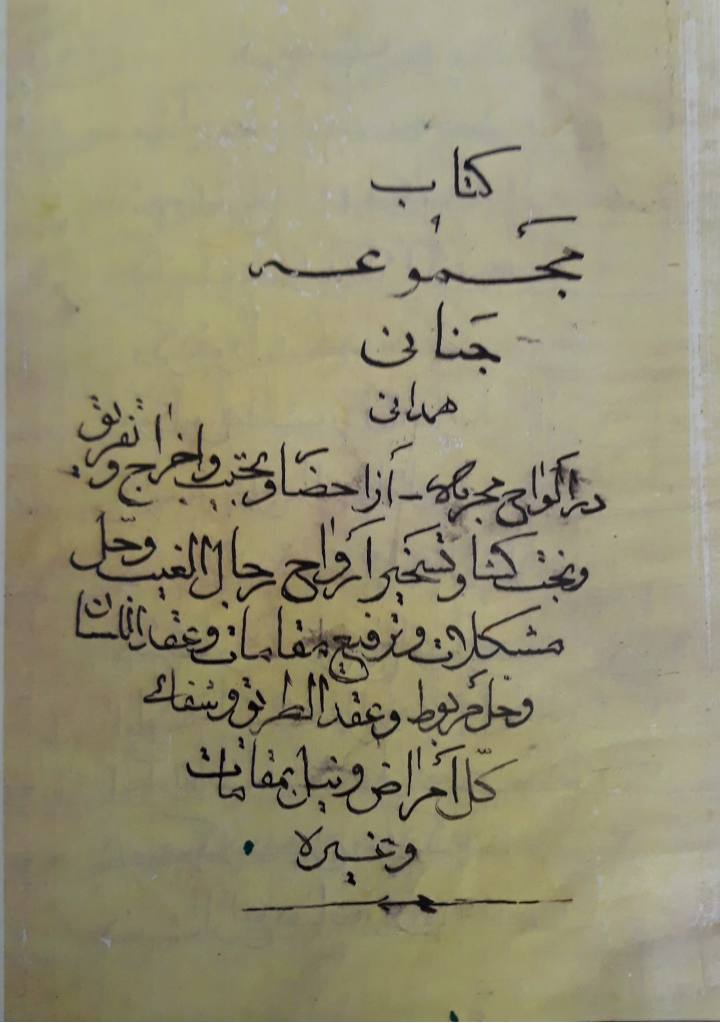 كتاب
مجموعه
جنانی
همدانی
در الواح مجربه - از احضار و تحبيب و اخراج و تفريق
و بخت گشا و تسخير ارواح رجال الغيب و حل
مشكلات و ترفيع مقامات و عقد اللسان
و حل مربوط و عقد الطريق و شفائ
كلّ أمراض و نيل بمقامات
و غيره